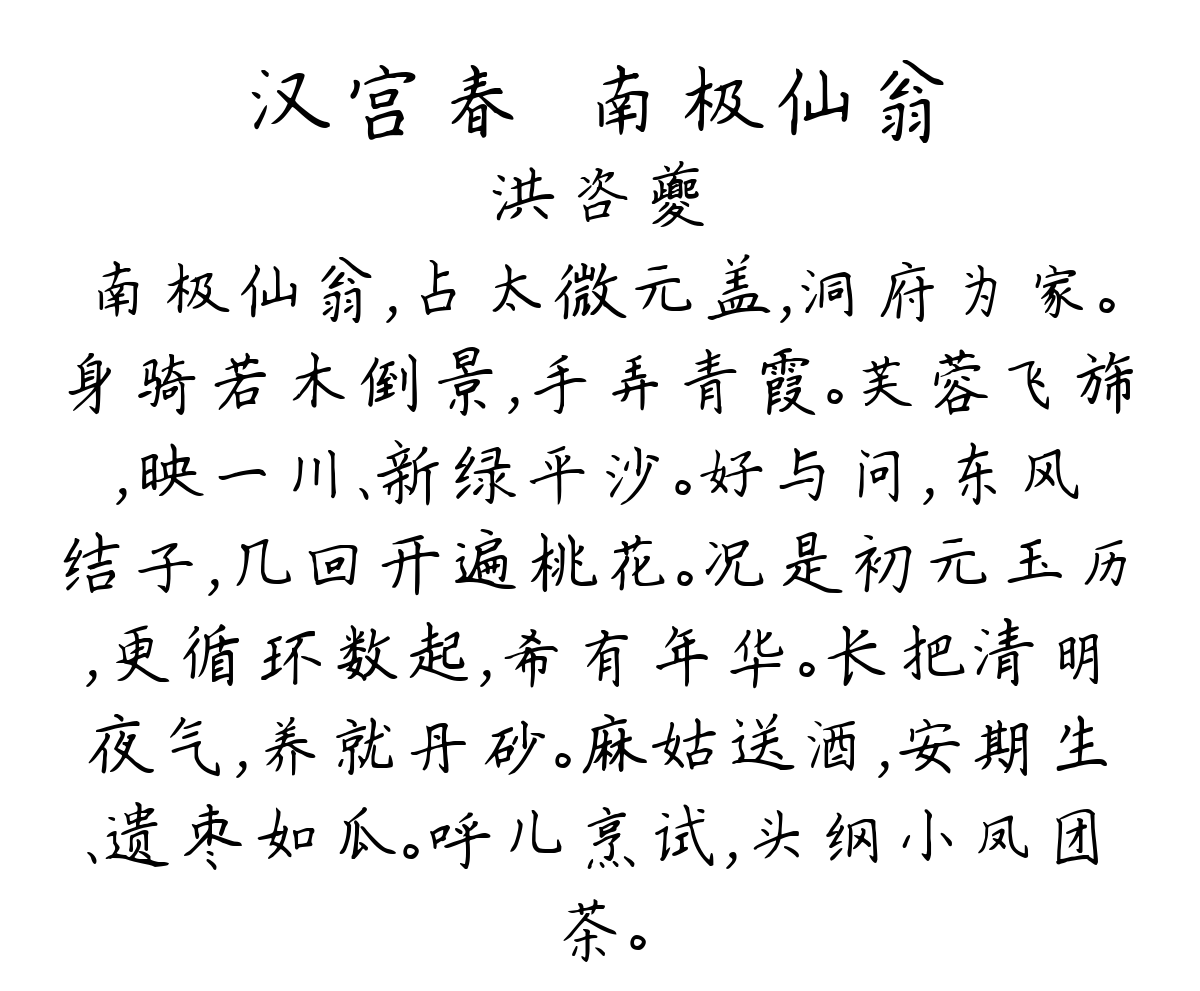 汉宫春 南极仙翁
洪咨夔
南极仙翁,占太微元盖,洞府为家。
身骑若木倒景,手弄青霞。芙蓉飞旆
,映一川、新绿平沙。好与问,东风
结子,几回开遍桃花。况是初元玉历
,更循环数起,希有年华。长把清明
夜气,养就丹砂。麻姑送酒,安期生
、遗枣如瓜。呼儿烹试,头纲小凤团
茶。